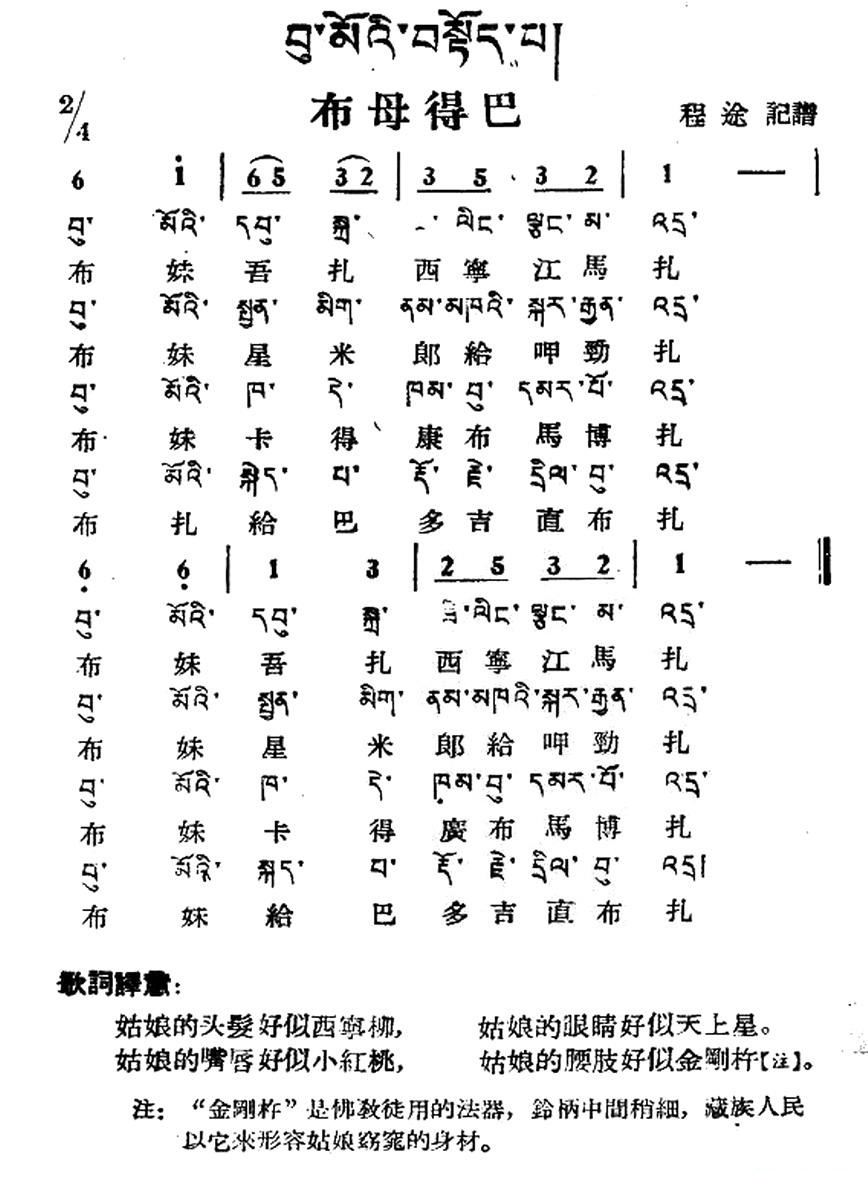 བུ་མོའི་བསྟོད་པ།
布母得巴
2/4
程途 記譜
6 i | 6 5 3 2 | 3 5 3 2 | 1 — |
བུ་ མོའི་ དབུ་ སྐྲ་ ལིང་ ལྕང་ མ་ འདྲ་
布 妹 吾 扎 西 寧 江 馬 扎
བུ་ མོའི་ སྤྱན་ མིག་ ནམ་མཁའི་ སྐར་རྒྱན་ འདྲ་
布 妹 星 米 郎 給 呷 勁 扎
བུ་ མོའི་ ཁ་ དེ་ ཁམ་ བུ་ དམར་པོ་ འདྲ་
布 妹 卡 得 康 布 馬 博 扎
བུ་ མོའི་ སྐེད་ པ་ རྡོ་ རྗེ་ དྲིལ་ བུ་ འདྲ་
布 扎 給 巴 多 吉 直 布 扎
6̣ 6̣ | 1 3 | 2 5 3 2 | 1 — ‖
བུ་ མོའི་ དབུ་ སྐྲ་ ལིང་ ལྕང་ མ་ འདྲ་
布 妹 吾 扎 西 寧 江 馬 扎
བུ་ མོའི་ སྤྱན་ མིག་ ནམ་མཁའི་སྐར་རྒྱན་ འདྲ་
布 妹 星 米 郎 給 呷 勁 扎
བུ་ མོའི་ ཁ་ དེ་ ཁམ་བུ་ དམར་པོ་ འདྲ་
布 妹 卡 得 廣 布 馬 博 扎
བུ་ མོའི་ སྐད་ པ་ རྡོ་ རྗེ་ དྲིལ་ བུ་ འདྲ།
布 妹 給 巴 多 吉 直 布 扎
歌詞譯意：
姑娘的头髮好似西寧柳， 姑娘的眼睛好似天上星。
姑娘的嘴唇好似小紅桃， 姑娘的腰肢好似金剛杵【注】。
注：“金剛杵”是佛教徒用的法器，鈴柄中間稍細，藏族人民
以它來形容姑娘窈窕的身材。